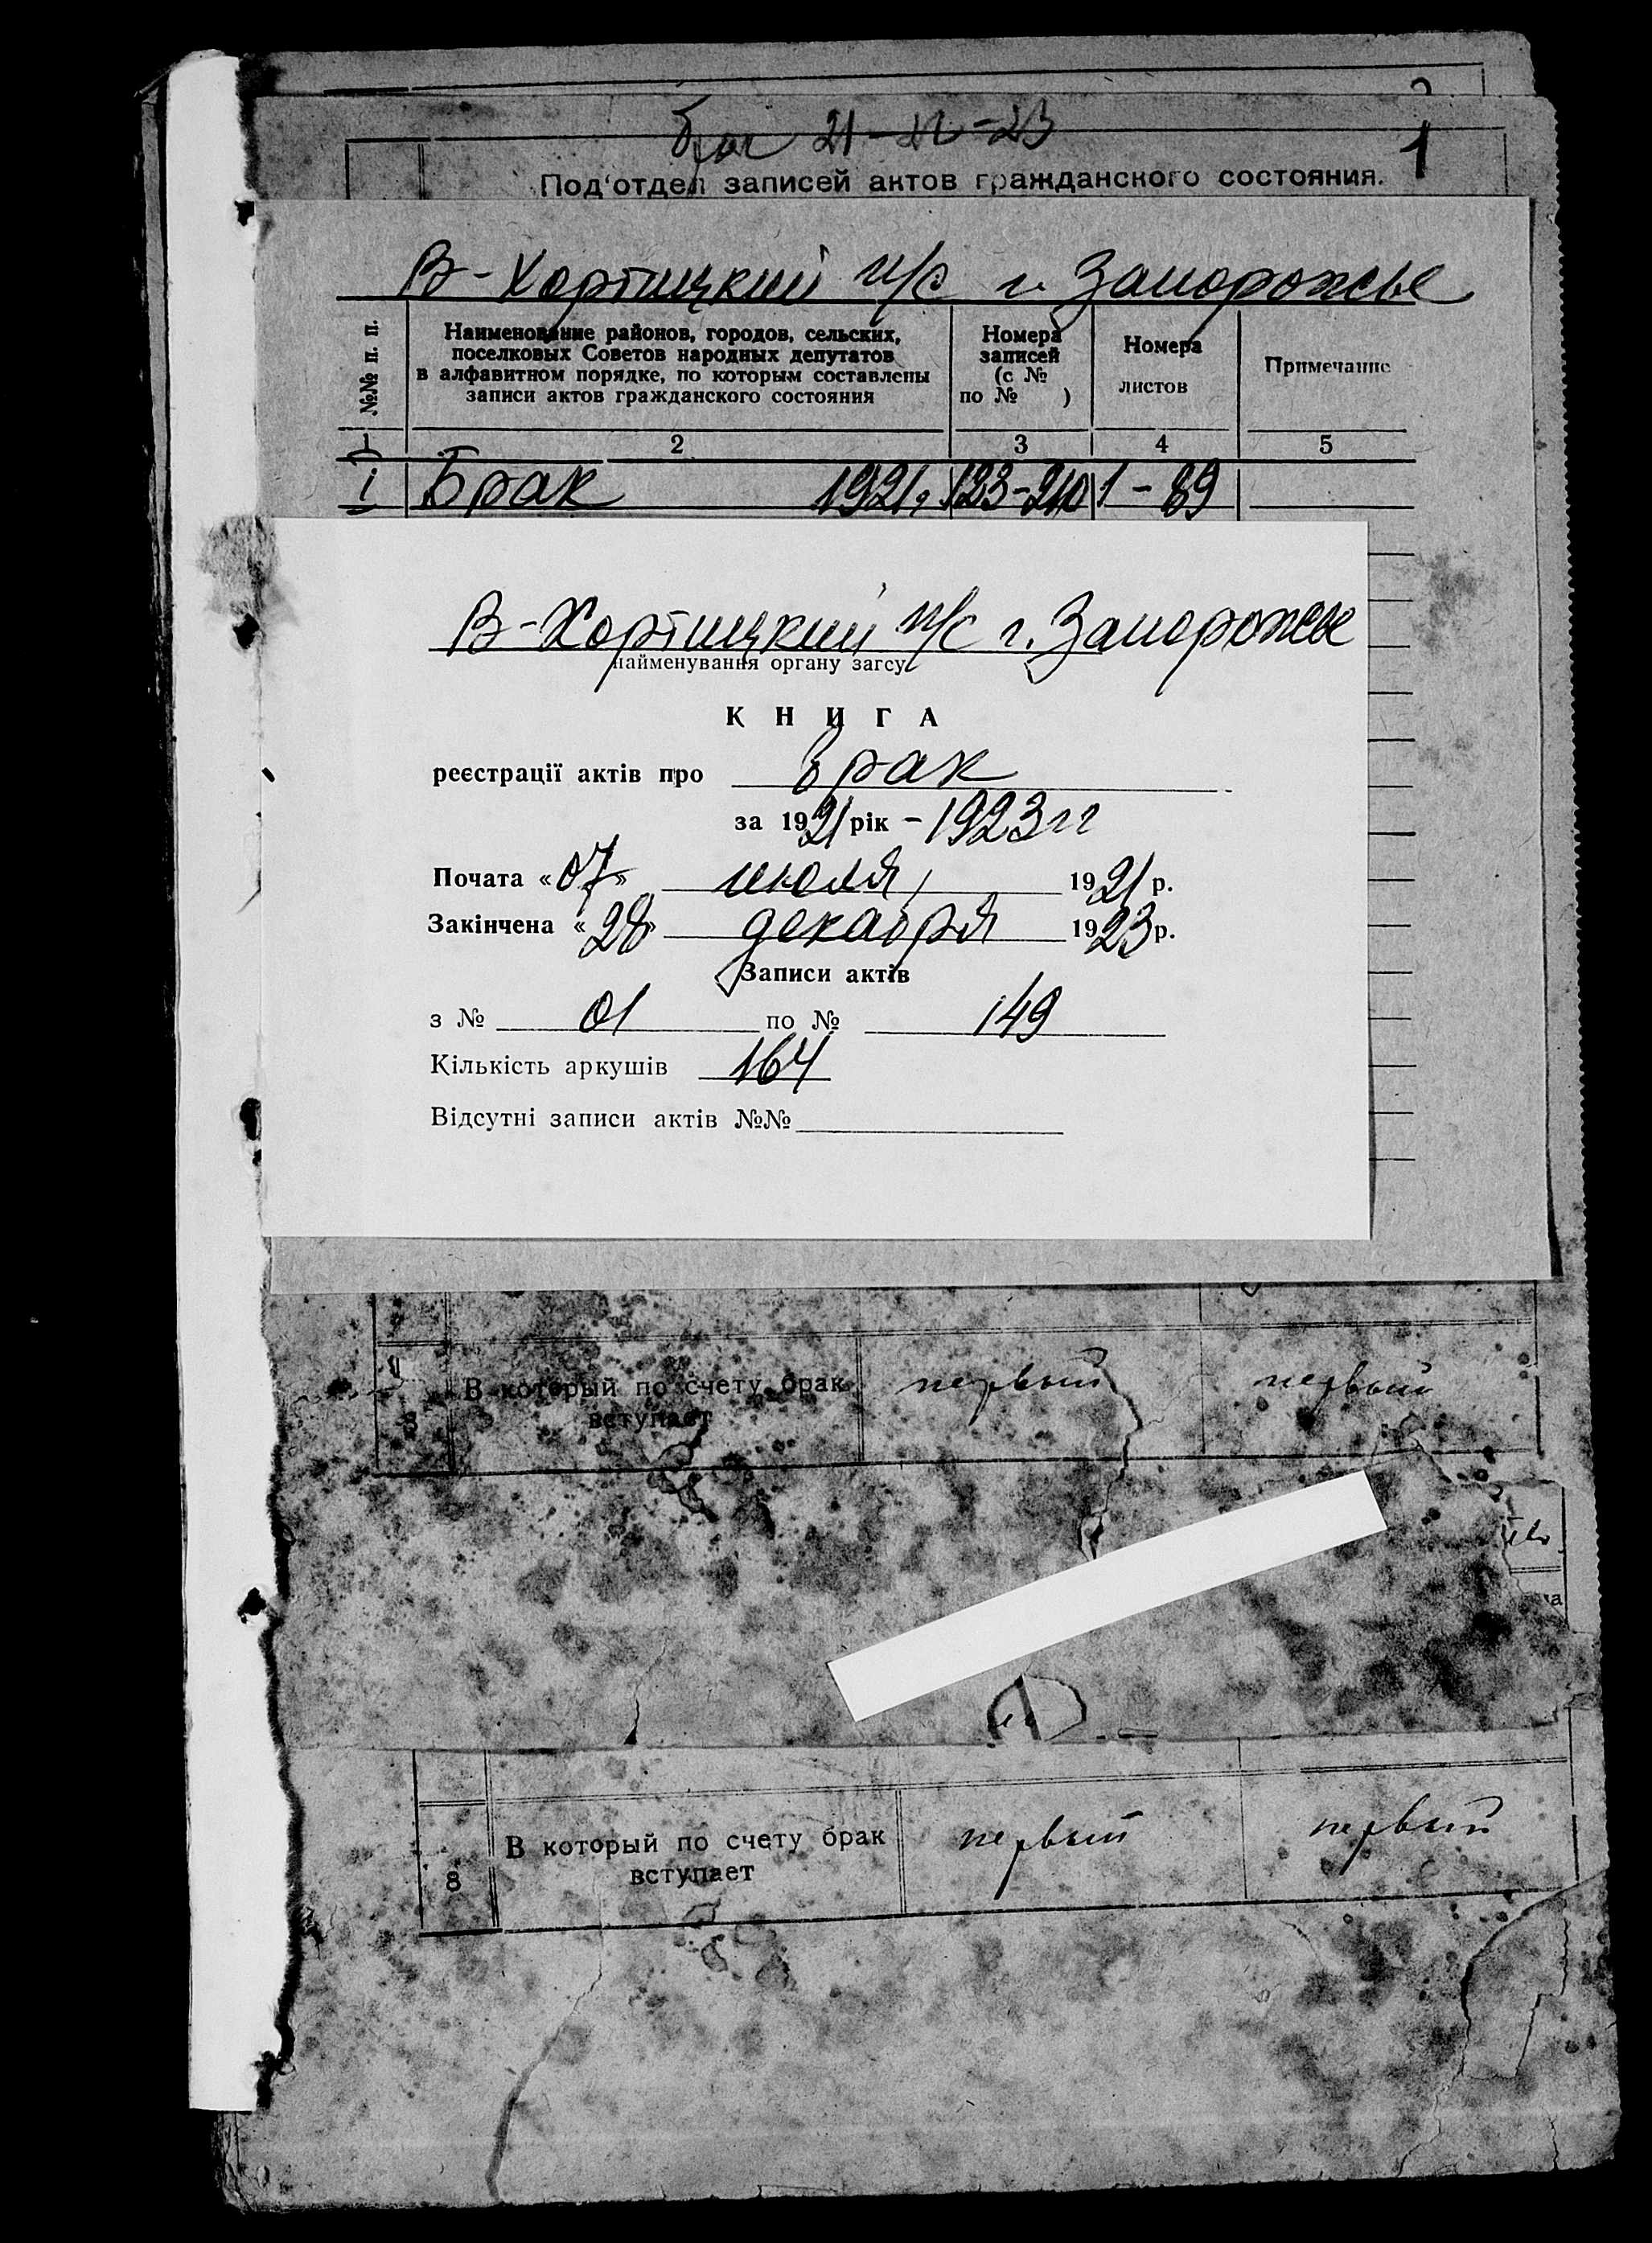 2
брак 21-22-23
1
Под'отдел записей актов гражданского состояния.
В-Хортицкий п/с г. Запорожье
№№ п. п.
Наименование районов, городов, сельских,
поселковых Советов народных депутатов
в алфавитном порядке, по которым составлены
записи актов гражданского состояния
Номера
записей
(с №
по № )
Номера
листов
Примечание
1 2 3 4 5
1 Брак 1921г 123-210 1-89
В-Хортицкий п/с г. Запорожье
найменування органу загсу
КНИГА
реєстрації актів про брак
за 1921 рік - 1923 гг
Почата «07» июля 1921 р.
Закінчена «28» декабря 1923 р.
Записи актів
з № 01 по № 149
Кількість аркушів 164
Відсутні записи актів №№
8 В который по счету брак первый первый
вступает
на
8 В который по счету брак первый первый
вступает